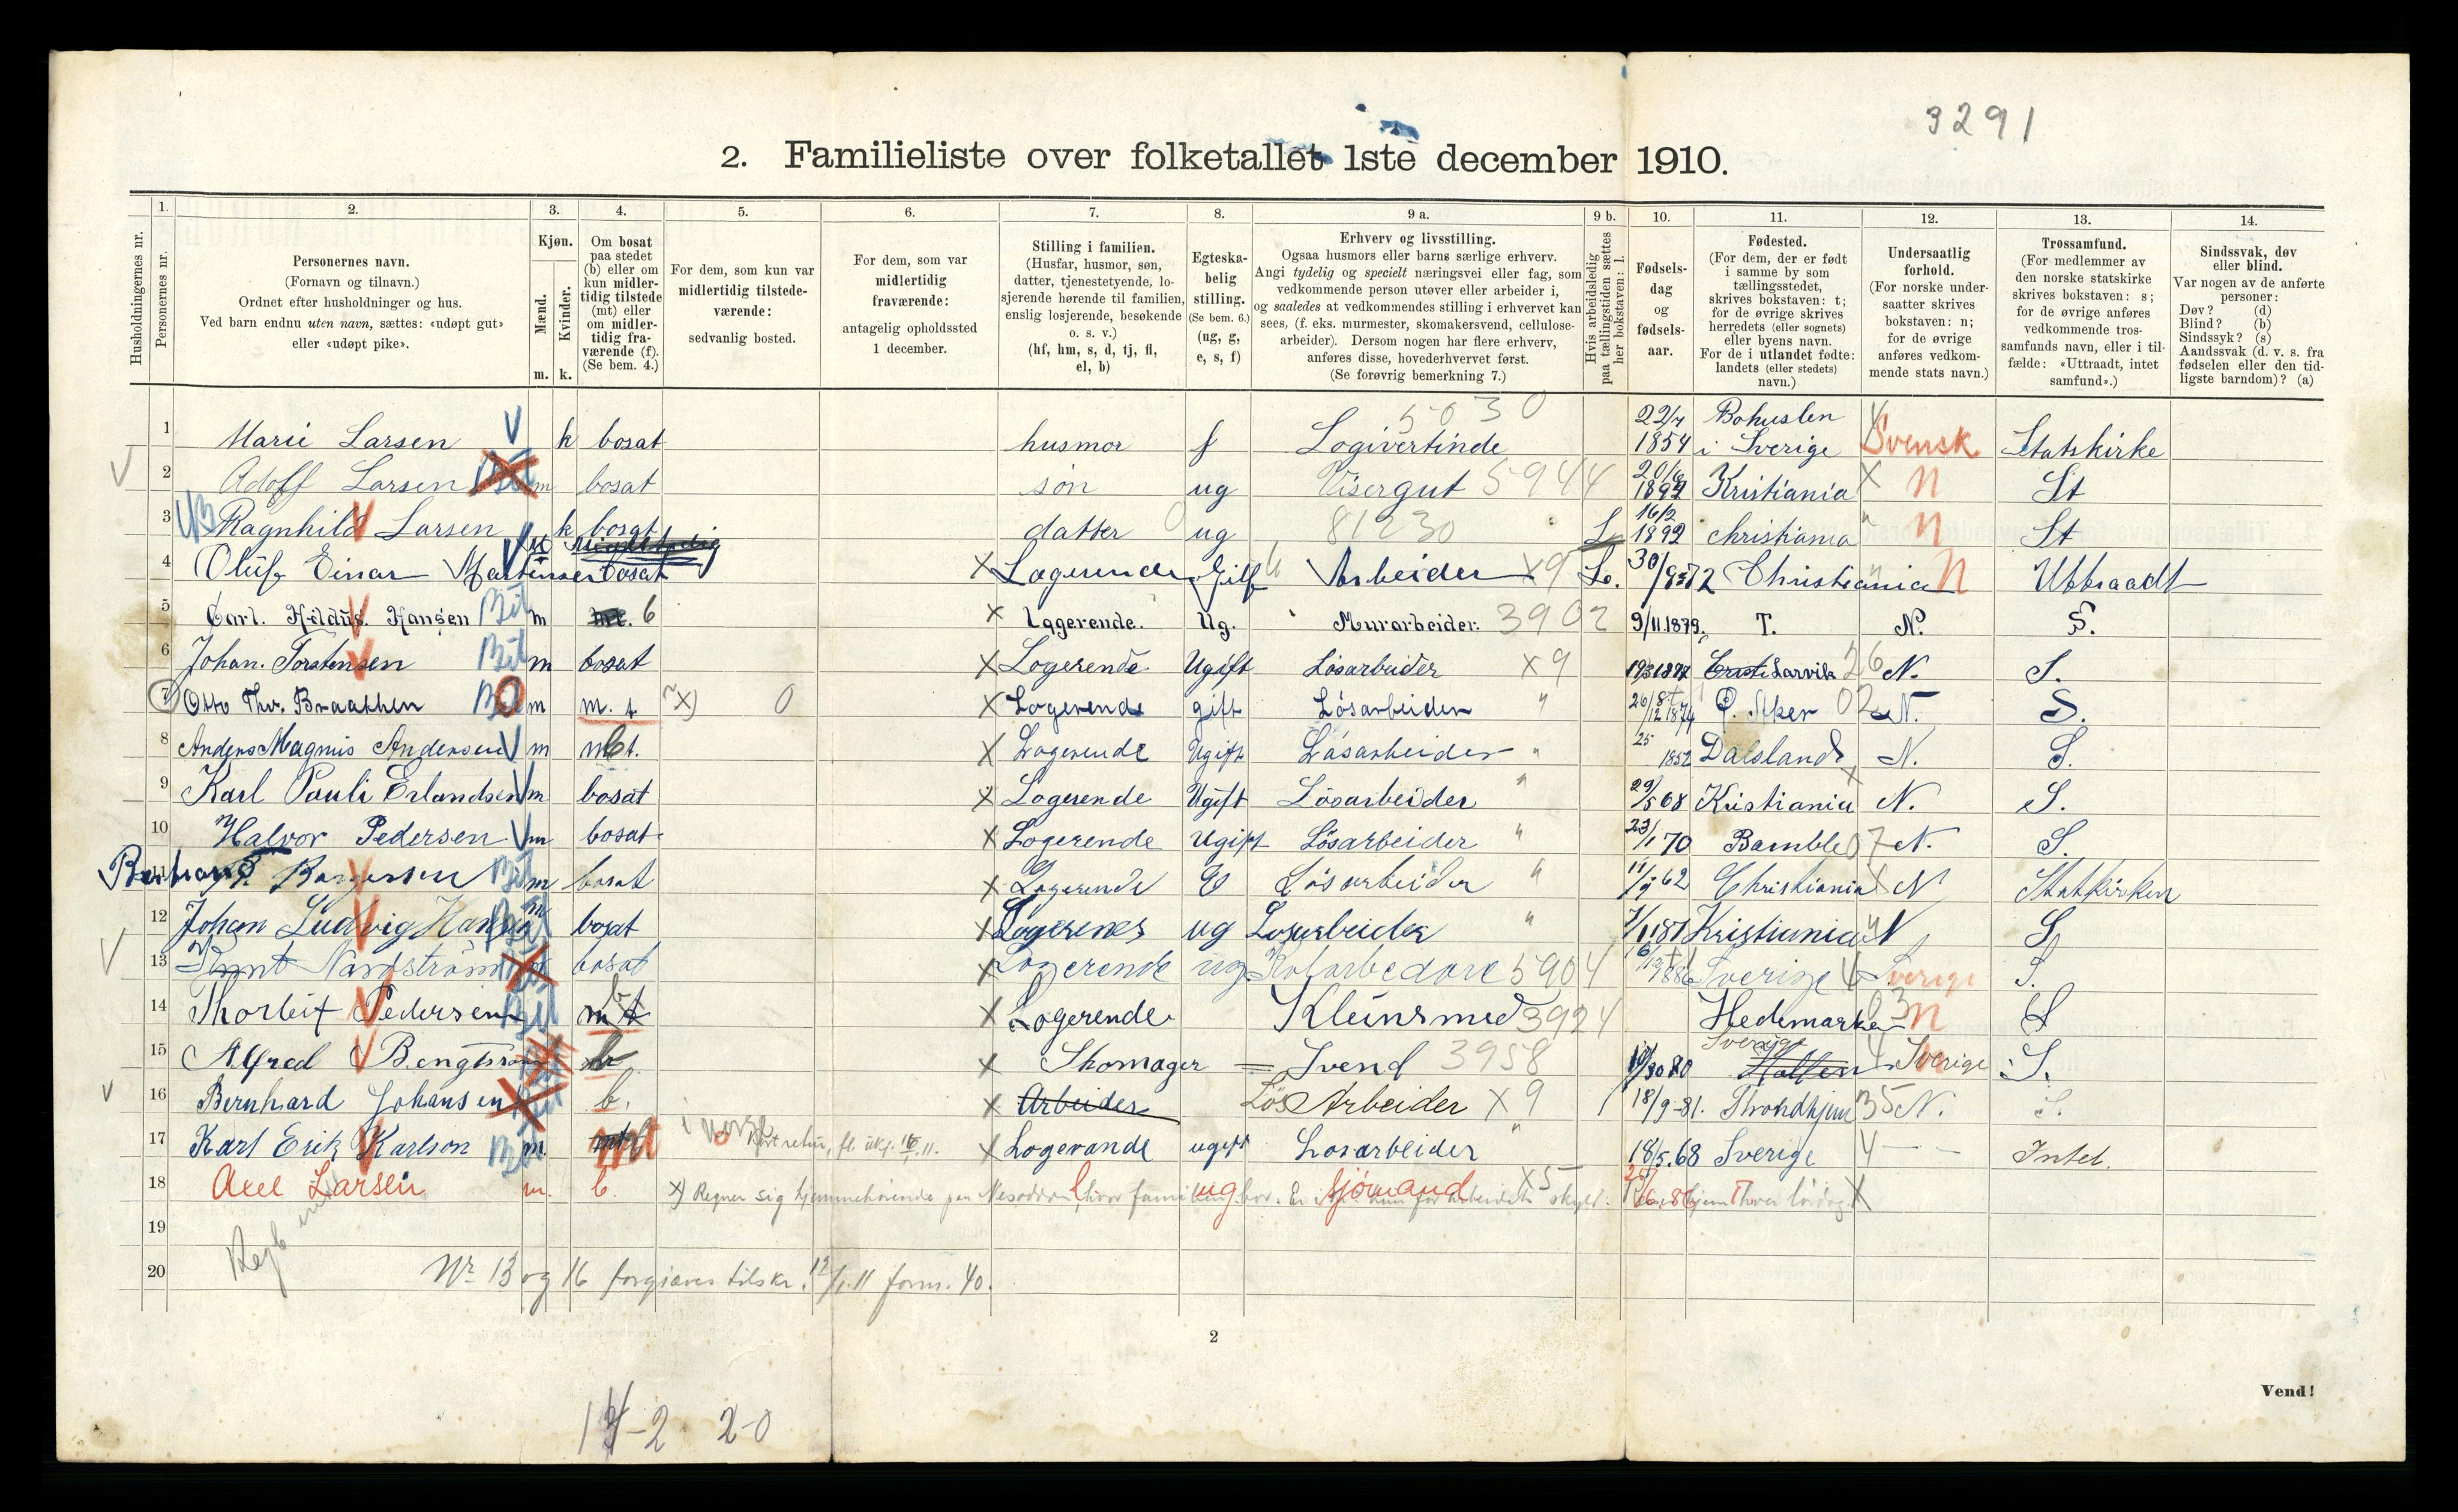 3291
2. Familieliste over folketallet 1ste december 1910.
Husholdningernes nr.
1. Personernes nr.
2. Personernes navn. (Fornavn og tilnavn.) Ordnet efter husholdninger og hus. Ved barn endnu uten navn, sættes: «udøpt gut» eller «udøpt pike».
3. Kjøn. Mænd. m. Kvinder. k.
4. Om bosat paa stedet (b) eller om kun midler- tidig tilstede (mt) eller om midler- tidig fra- værende (f). (Se bem. 4.)
5. For dem, som kun var midlertidig tilstede- værende: sedvanlig bosted.
6. For dem, som var midlertidig fraværende: antagelig opholdssted 1 december.
7. Stilling i familien. (Husfar, husmor, søn, datter, tjenestetyende, lo- sjerende hørende til familien, enslig losjerende, besøkende o. s. v.) (hf, hm, s, d, tj, fl, el, b)
8. Egteska- belig stilling. (Se bem. 6.) (ug, g, e, s, f)
9 a. Erhverv og livsstilling. Ogsaa husmors eller barns særlige erhverv. Angi tydelig og specielt næringsvei eller fag, som vedkommende person utøver eller arbeider i, og saaledes at vedkommendes stilling i erhvervet kan sees, (f. eks. murmester, skomakersvend, cellulose- arbeider). Dersom nogen har flere erhverv, anføres disse, hovederhvervet først. (Se forøvrig bemerkning 7.)
9 b. Hvis arbeidsledig paa tællingstiden sættes her bokstaven: l.
10. Fødsels- dag og fødsels- aar.
11. Fødested. (For dem, der er født i samme by som tællingsstedet, skrives bokstaven: t; for de øvrige skrives herredets (eller sognets) eller byens navn. For de i utlandet fødte: landets (eller stedets) navn.)
12. Undersaatlig forhold. (For norske under- saatter skrives bokstaven: n; for de øvrige anføres vedkom- mende stats navn.)
13. Trossamfund. (For medlemmer av den norske statskirke skrives bokstaven: s; for de øvrige anføres vedkommende tros- samfunds navn, eller i til- fælde: «Uttraadt, intet samfund».)
14. Sindssvak, døv eller blind. Var nogen av de anførte personer: Døv? (d) Blind? (b) Sindssyk? (s) Aandssvak (d. v. s. fra fødselen eller den tid- ligste barndom)? (a)
1 Marie Larsen k bosat husmor f Logivertinde 5030 22/7 1854 Bohuslen i Sverige Svensk Statskirke
2 Adolf Larsen m bosat søn ug Visergut 5944 Kristiania n St
3 Ragnhild Larsen k bosat datter ug 81230 L 16/2 1892 christiania n St
4 Oluf Einar Martinsen bosat Logerende Gift Arbeider X9 L. Christiania N Uttraadt
5 Carl. Hansen m b Logerende. Ug. Murarbeider. 3902 9/11.1879. T. N. S.
6 Johan. Torstensen m bosat Logerende Ugift Løsarbeider X9 Larvik 26 N. S.
7 Otto Thv. Braathen m m. t. X) 0 Logerende gift Løsarbeider " Aker 02 N. S.
8 Anders Magnus Andersen m Logerende Ugift Løsarbeider " 25 1852 Dalsland N. S.
9 Karl Pauli Erlandsen m bosat Logerende Ugift Løsarbeider " 29/5 68 Kristiania N. S.
10 Halvor Pedersen m bosat Logerende Ugift Løsarbeider " 23/1 70 Bamble 07 N. S.
11 m bosat Logerende Løsarbeider " Christiania N Statkirken
12 Johan Ludvig Hansen bosat Logerenes ug Losarbeider " Kristiania N S
13 Nordström bosat Logerende ug 5904 Sverige 4 Sverige S.
14 Thorleif Pedersen Logerende Kleinsmed 3924 Hedemarken 03 n S
15 Alfred Bengtsson Skomager = Svend 3958 Sverige 4 Sverige S.
16 Bernhard Johansen b. Arbeider Løs Arbeider X9 18/9-81. Throndhjem 35 N. S.
17 Karl Erik Karlson m. mt i Norge Logerande ugift Losarbeider " 18/5.68 Sverige 4 - - Intet.
18 Axel Larsen m. b. ug sjømand X5 T X
X) Regner sig hjemmehørende paa Nesodden, hvor familien bor. Er i kun for arbeidets skyld. hjem hver lørdag.
19
20 Nr 13 og 16 forgjæves tilskr. 12/1.11 form. 40.
2
Vend!
2-0